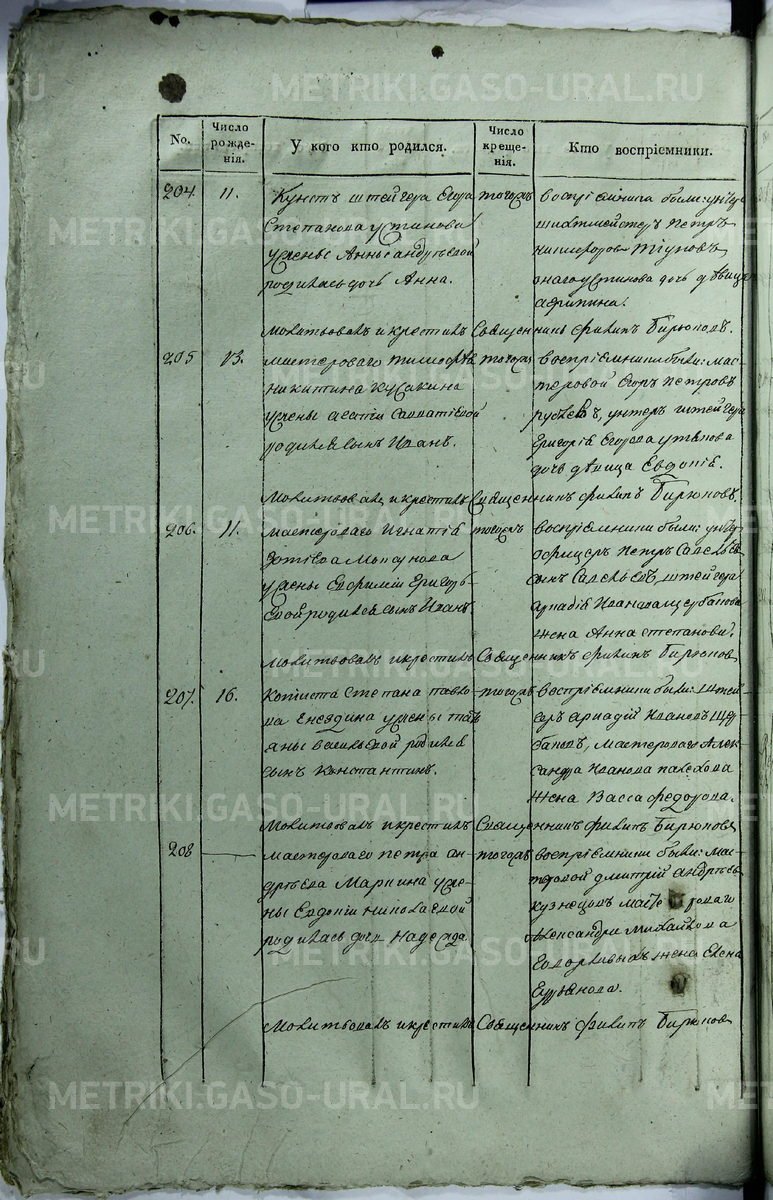 METRIKI.GASO-URAL.RU
No.
Число рожде-нія.
У кого кто родился.
Число креще-нія.
Кто воспріемники.
204.
11.
Кунстъ штейгера Егора
Степанова Устинова
уженеы Анны Андреевой
родилась дочь Анна.
тогожъ
воспріемники были: унтеръ
шихтмейстеръ Петръ
онаго Устинова дочь дѣвица
Афапиина.
Молитвовалъ и крестилъ Священникъ Филипъ Бирюковъ.
205
13.
мастероваго Тимофѣя
Никитина Кусакина
родился сынъ Иванъ.
тогожъ
воспріемники были: мас-
теровой Егоръ Петровъ
унтеръ штейгера
Григорія Егорова
дочь дѣвица Евдокія.
Молитвовалъ и крестилъ Священникъ Филипъ Бирюковъ.
206.
11.
мастероваго Игнатія
Зотѣева Мокрунова
у жены Евфиміи Григорь-
евой родился сынъ Иванъ
тогожъ
воспріемники были: унтеръ
офицеръ Петръ Савельевъ
сынъ Савельевъ, штейгера
Аркадія Иванова Щербакова
жена Анна Степанова.
Молитвовалъ и крестилъ Священникъ Филипъ Бирюковъ
207.
16.
Кописта Степана Павло-
ва у жены Тать
яны Васильевой родился
сынъ Константинъ.
тогожъ
воспріемники были: штей
геръ Аркадій Ивановъ Щер-
баковъ, мастероваго Алек-
сандра Иванова
жена Васса Федорова.
Молитвовалъ и крестилъ Священникъ Филипъ Бирюковъ
208
мастероваго Петра Ан-
дреева Маркина у же-
ны Евдокіи Николаевой
родилась дочь Надежда
тогожъ
воспріемники были: мас-
теровой Дмитрій Андреевъ
Кузнецовъ мастероваго
Александра Михайлова
жена Елена
Молитвовалъ и крестилъ Священникъ Филипъ Бирюковъ
METRIKI.GASO-URAL.RU